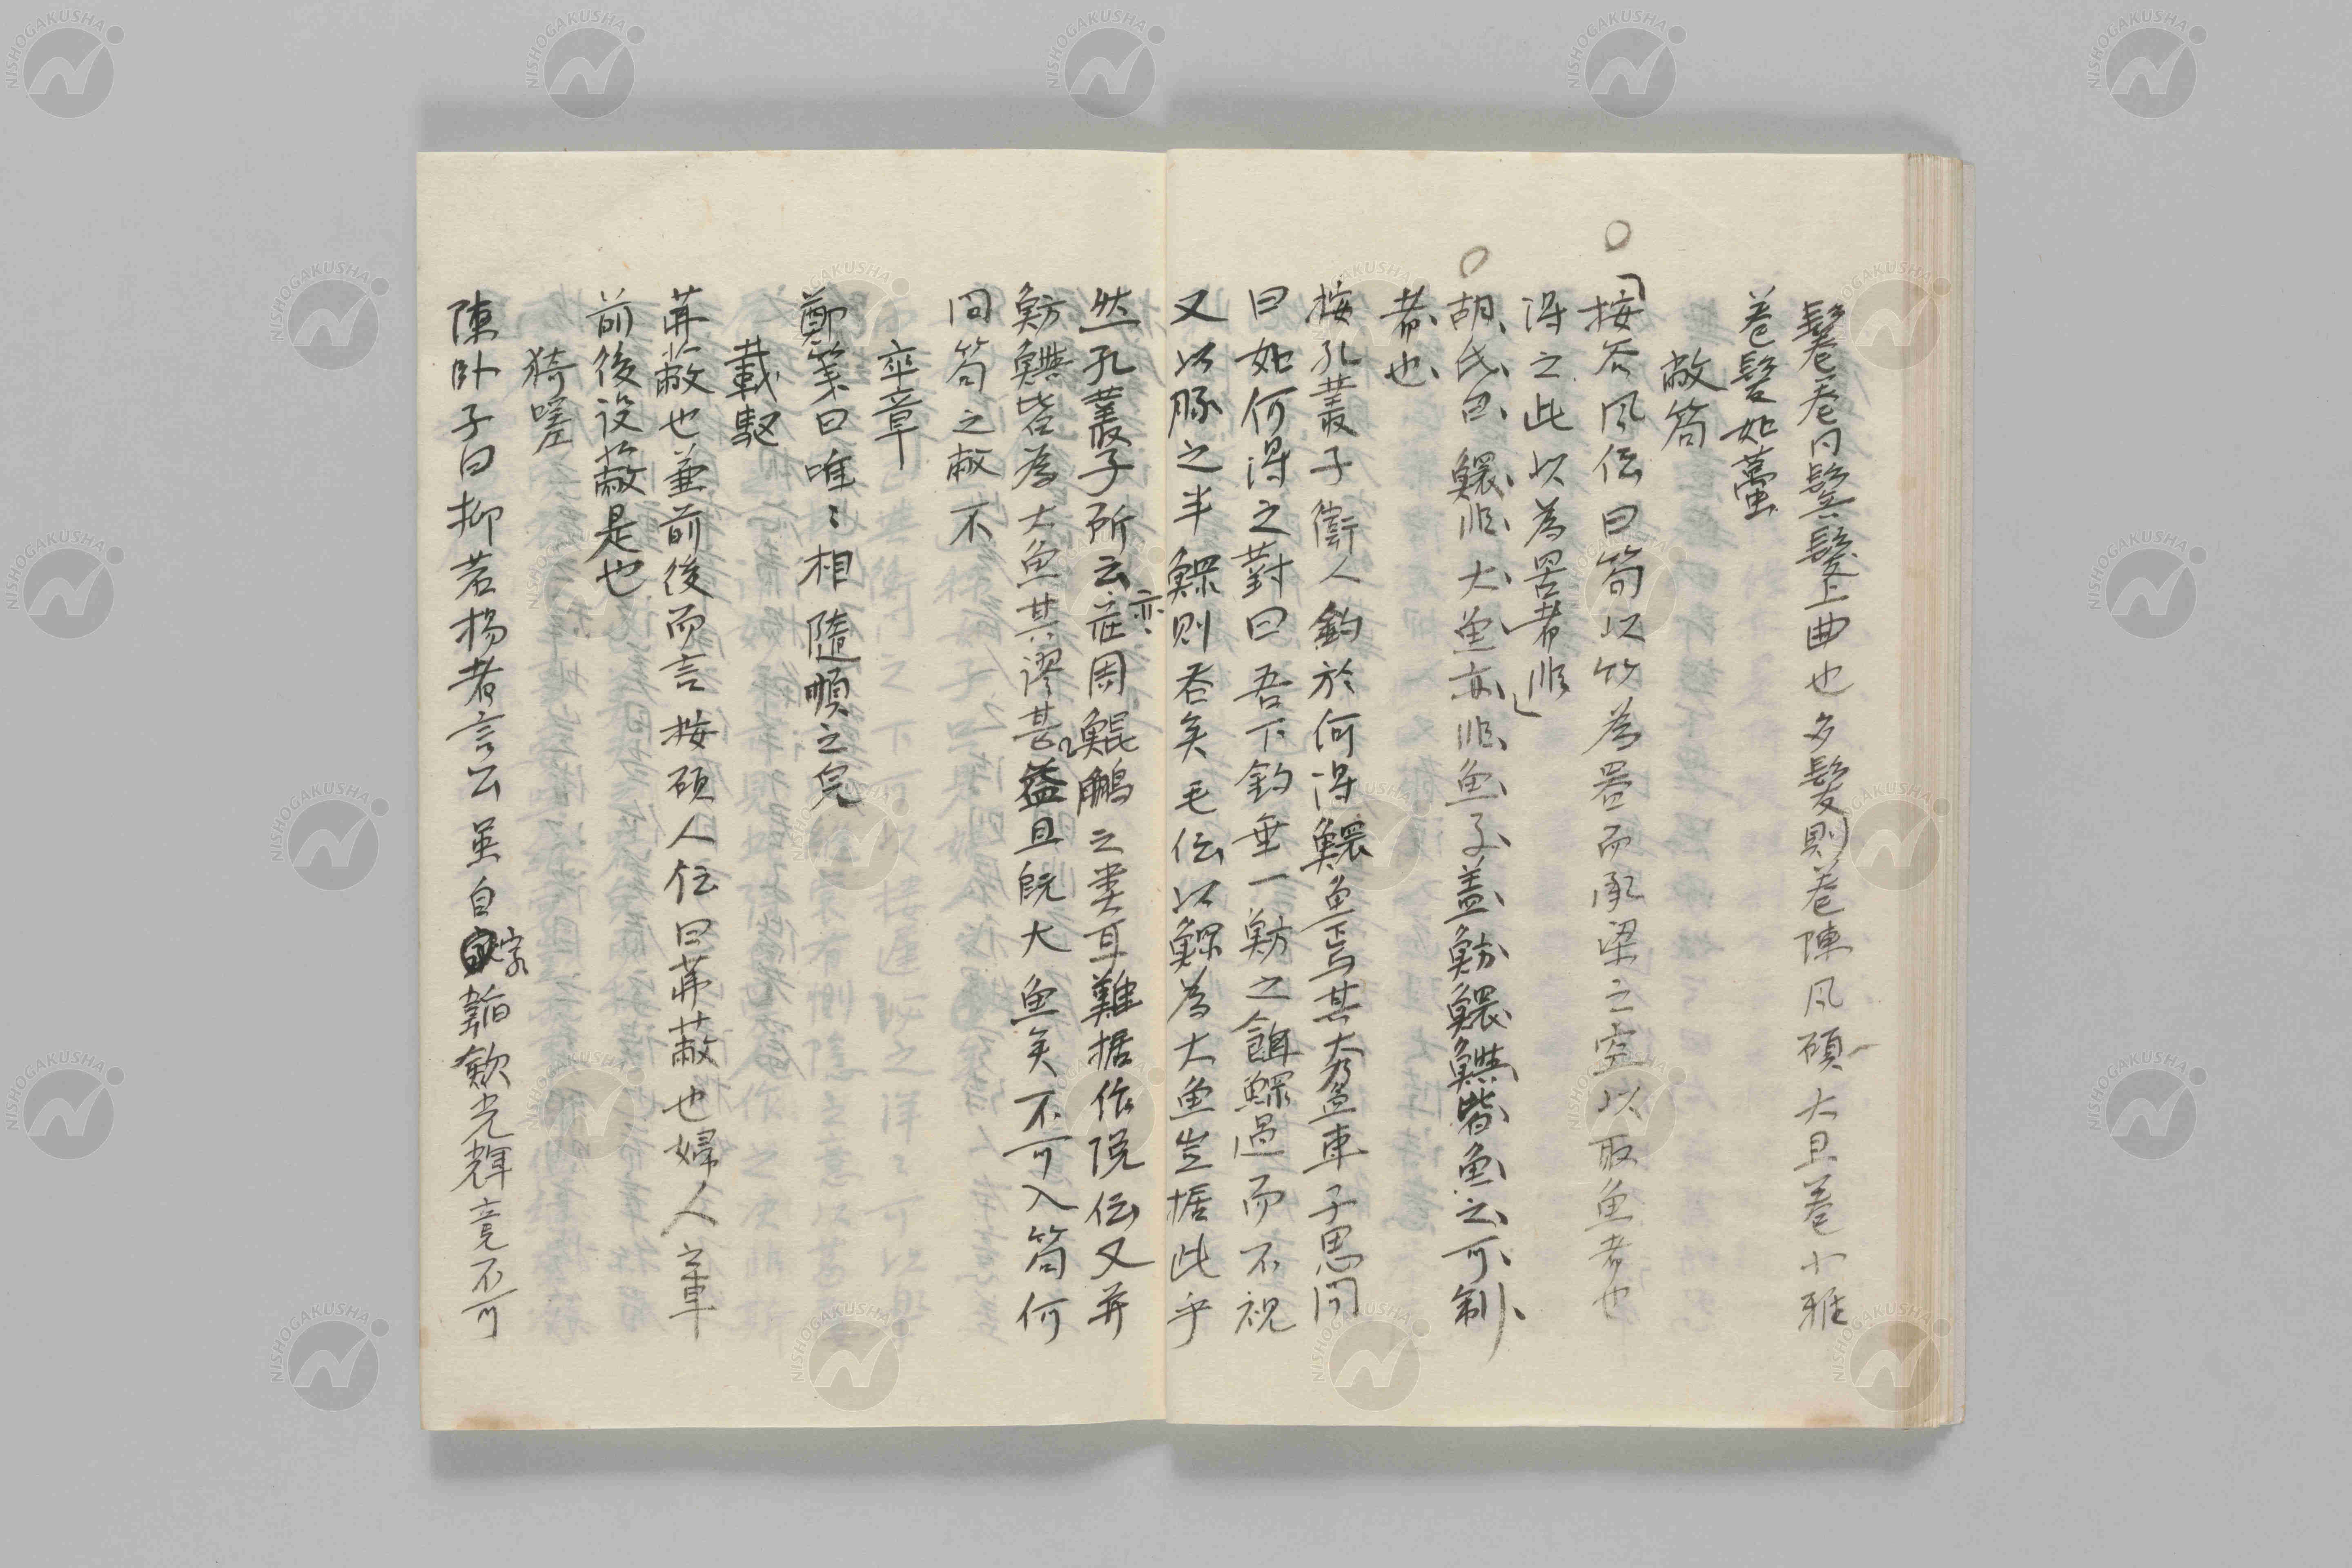 鬈卷巻同鬈鬢上曲也多髮則巻陳風碩大且巻小雅
巻髮如蠆
敝笱
按谷風伝曰笱以竹為器而承梁之空以取魚者也
得之此以為罟者非
胡氏曰鰥非大魚亦非魚子盖魴鰥鱮皆魚之可制
者也
按孔叢子衞人釣於何得鰥魚焉其大盈車子思問
曰如何得之對曰吾下釣垂一魴之餌鰥過而不視
又以豚之半鰥則吞矣毛伝以鰥為大魚豈據此乎
然孔叢子所云亦荘周鯤鵬之类耳難据作説伝又并
魴鱮皆為大魚其謬甚益且既大魚矣不可入笱何
問笱之敝不
卒章
鄭箋曰唯〻相隨順之皃
載駆
茀蔽也並前後而言按碩人伝曰茀蔽也婦人車
前後設蔽是也
猗嗟
陳卧子曰抑若揚者言公虽自字韜歛光輝竟不可
NISHOGAKUSHA